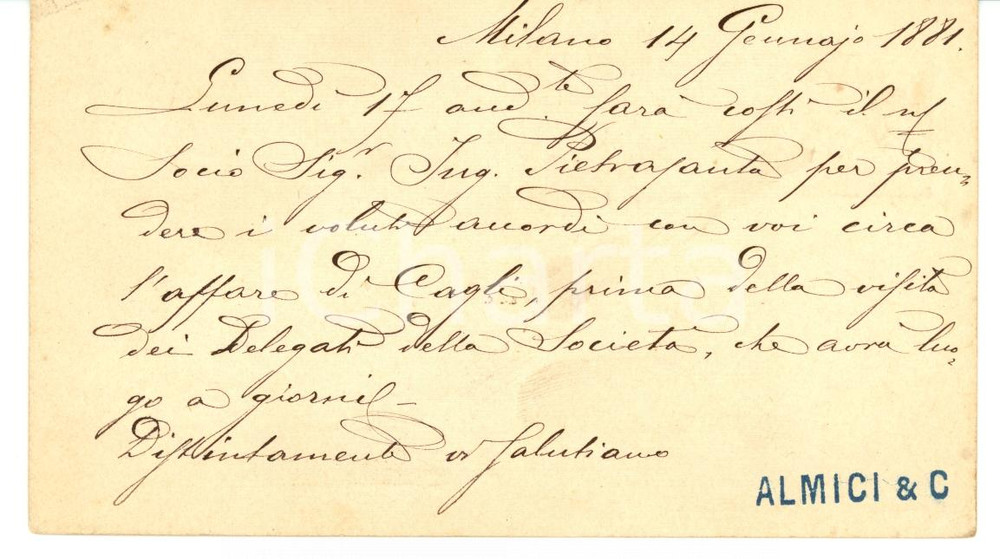 Milano 14 Gennajo 1881.
Lunedì 17 and.te sarà costì il n/
Socio Sig.r Ing. Pietrasanta per pren„
dere i voluti accordi con voi circa
l'affare di Cagli, prima della visita
dei Delegati della Società, che avrà luo„
go a giorni –
Distintamente vi salutiamo
ALMICI & C
iCharta